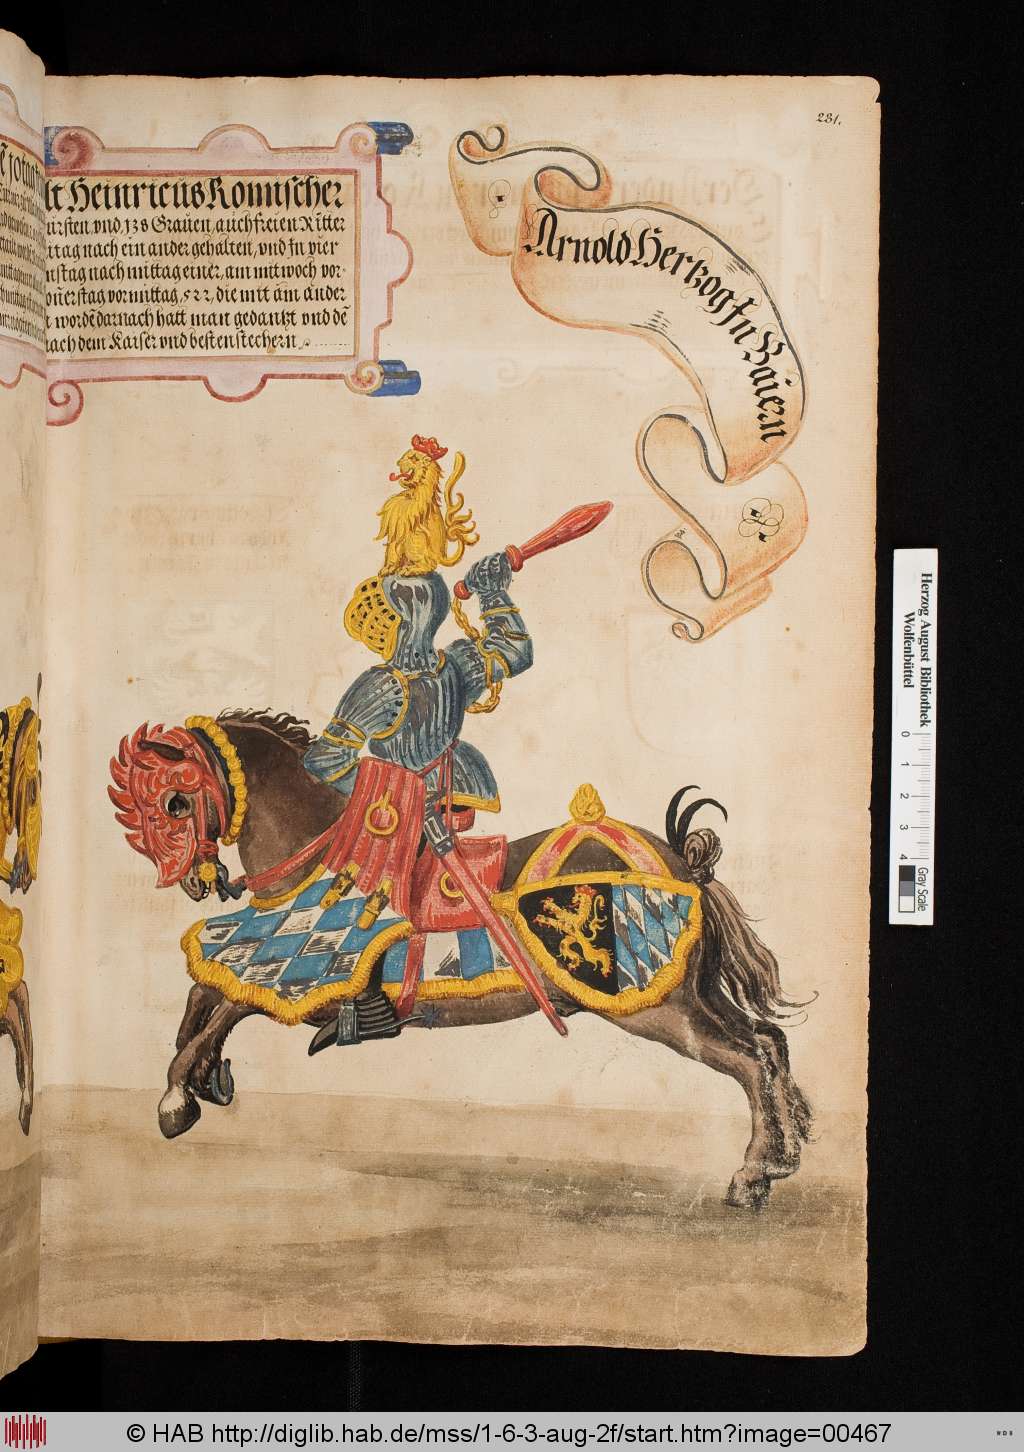 231.
lt Heinricus Romischer
ürsten, vnd, 138 Grauen, auch freien Ritter
ittag nach ein ander gehalten, vnd jn vier
nstag nach mittag einer, am mitwoch vor-
onerstag vormittag, 522, die mit äm ander
t wordē darnach hatt man gedankt vnd dē
nach dem Kaiser vnd besten stechern
Arnold Hertzog Jn Baiern
Herzog August Bibliothek
Wolfenbüttel
0 1 2 3 4
Gray Scale
© HAB http://diglib.hab.de/mss/1-6-3-aug-2f/start.htm?image=00467